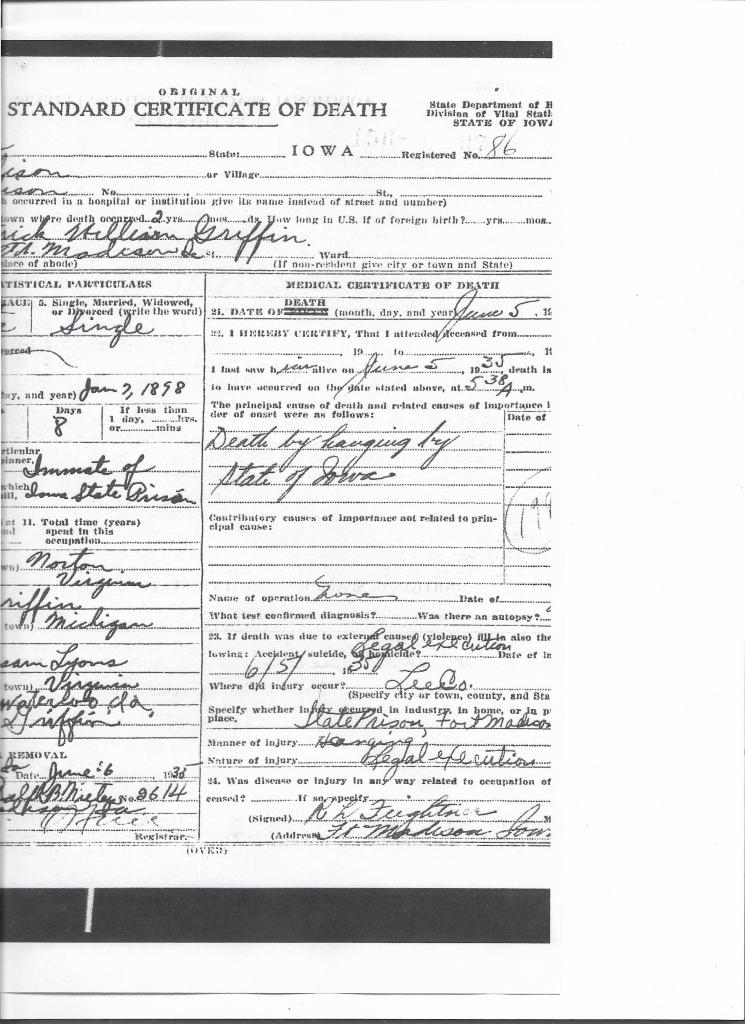 ORIGINAL
STANDARD CERTIFICATE OF DEATH
State Department of H
Division of Vital Stati
STATE OF IOWA
State: IOWA Registered No. 86
ison or Village
ison No. St.,
h occurred in a hospital or institution give its name instead of street and number)
own where death occurred 2 yrs. mos. ds. How long in U.S. if of foreign birth? yrs. mos.
rick William Griffin.
Ft. Madison Ia St. Ward.
lace of abode) (If non-resident give city or town and State)
TISTICAL PARTICULARS
RACE 5. Single, Married, Widowed,
or Divorced (write the word)
Single
orced
ay, and year) Jan 7, 1898
Days If less than
8 1 day, hrs.
or mins
rticular
pinner, Inmate of
which
ill, Iowa State Prison
at 11. Total time (years)
nd spent in this
occupation
wn) Norton
Virginia
riffin
town) Michigan
Lyons
town) Virginia
Waterloo Ia,
Griffin
REMOVAL
Date June 6 1935
No. 2614
Registrar.
MEDICAL CERTIFICATE OF DEATH
DEATH
21. DATE OF (month, day, and year) June 5, 19
22. I HEREBY CERTIFY, That I attended deceased from
, 19 to , 19
I last saw him alive on June 5, 1935, death is
to have occurred on the date stated above, at 5 38 A m.
The principal cause of death and related causes of importance i
der of onset were as follows:
Date of
Death by hanging by
State of Iowa
Contributory causes of importance not related to prin-
cipal cause:
Name of operation None Date of
What test confirmed diagnosis? Was there an autopsy?
23. If death was due to external causes (violence) fill in also the
Legal execution
lowing: Accident, suicide, or homicide? Date of in
6/5/ 1935
Where did injury occur? Lee Co.
(Specify city or town, county, and Sta
Specify whether injury occurred in industry, in home, or in p
place. State Prison, Fort Madison
Manner of injury Hanging
Nature of injury Legal execution
24. Was disease or injury in any way related to occupation of
ceased? If so, specify
(Signed) R L Feightner M
(Address) Ft Madison Iow
(OVER)